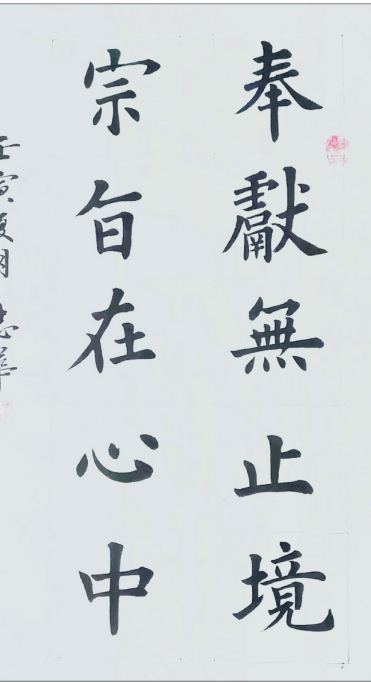 奉獻無止境
宗旨在心中
壬寅夏月 志華